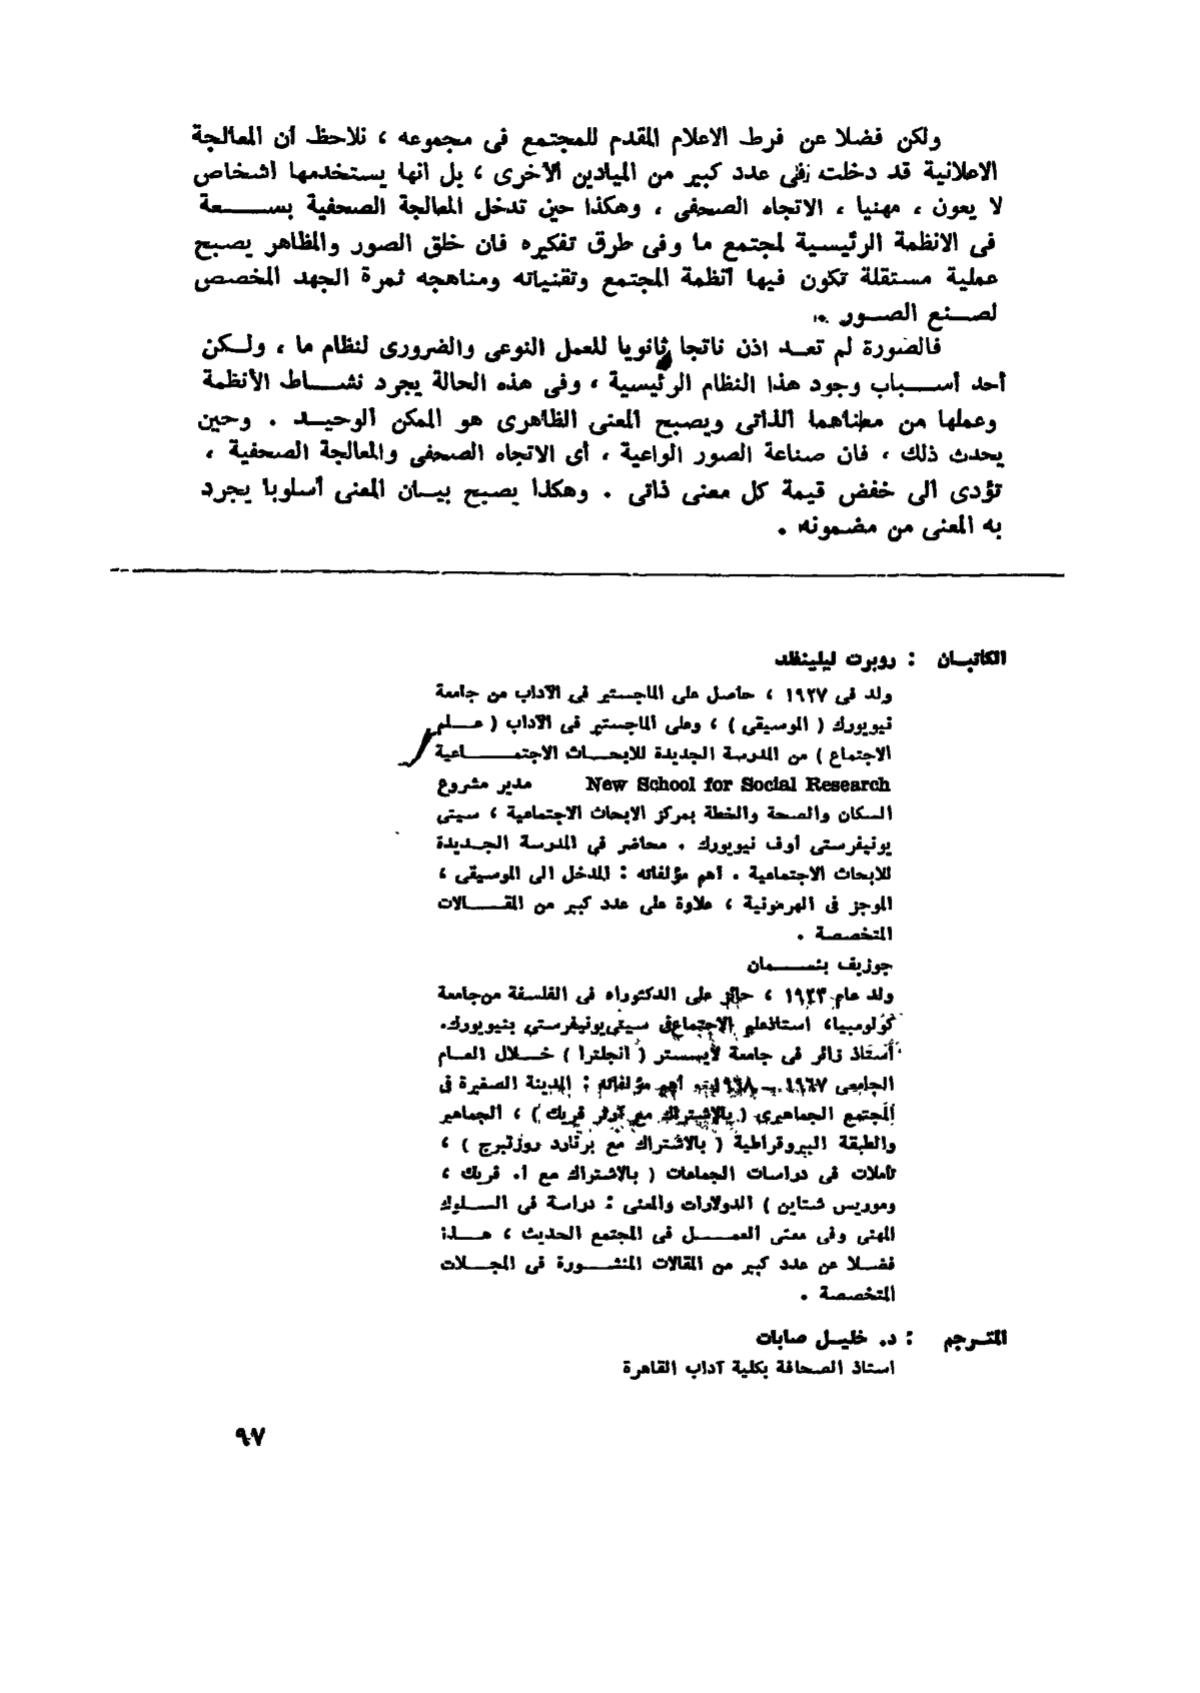 ولكن فضلا عن فرط الاعلام المقدم للمجتمع فى مجموعه ، نلاحظ أن المعالجة
الاعلانية قد دخلت فى عدد كبير من الميادين الأخرى ، بل انها يستخدمها أشخاص
لا يعون ، مهنيا ، الاتجاه الصحفى ، وهكذا حين تدخل المعالجة الصحفية بســـعة
فى الانظمة الرئيسية لمجتمع ما وفى طرق تفكيره فان خلق الصور والمظاهر يصبح
عملية مستقلة تكون فيها أنظمة المجتمع وتقنياته ومناهجه ثمرة الجهد المخصص
لصــنع الصــور .
فالصورة لم تعــد اذن ناتجا ثانويا للعمل النوعى والضرورى لنظام ما ، ولــكن
أحد أســـباب وجود هذا النظام الرئيسية ، وفى هذه الحالة يجرد نشـــاط الأنظمة
وعملها من معناهما الذاتى ويصبح المعنى الظاهرى هو الممكن الوحيــد . وحين
يحدث ذلك ، فان صناعة الصور الواعية ، أى الاتجاه الصحفى والمعالجة الصحفية ،
تؤدى الى خفض قيمة كل معنى ذاتى . وهكذا يصبح بيــان المعنى أسلوبا يجرد
به المعنى من مضمونه .
الكاتبــان : روبرت ليلينفلد
ولد فى ١٩٢٧ ، حاصل على الماجستير فى الآداب من جامعة
نيويورك ( الموسيقى ) ، وعلى الماجستير فى الآداب ( علــم
الاجتماع ) من المدرسة الجديدة للابحــاث الاجتمـــــاعية
New School for Social Research مدير مشروع
السكان والصحة والخطة بمركز الابحاث الاجتماعية ، سيتى
يونيفرستى أوف نيويورك . محاضر فى المدرسة الجــديدة
للابحاث الاجتماعية . أهم مؤلفاته : المدخل الى الموسيقى ،
الموجز فى الهرمونية ، علاوة على عدد كبير من المقــــالات
المتخصصة .
جوزيف بنســـمان
ولد عام ١٩٢٣ ، حائز على الدكتوراه فى الفلسفة من جامعة
كولومبيا، استاذ علم الاجتماع فى سيتى يونيفرستى بنيويورك.
أستاذ زائر فى جامعة لايسستر ( انجلترا ) خــلال العــام
الجامعى ١٩٦٧ ـ ١٩٦٨ أهم مؤلفاته : المدينة الصغيرة فى
المجتمع الجماهيرى ( بالاشتراك مع آرثر فريك ) ، الجماهير
والطبقة البيروقراطية ( بالاشتراك مع برنارد روزنبرج ) ،
تأملات فى دراسات الجماعات ( بالاشتراك مع أ. فريك ،
وموريس شتاين ) الدولارات والمعنى : دراسة فى الســلوك
المهنى وفى معنى العمــــل فى المجتمع الحديث ، هــذا
فضــلا عن عدد كبير من المقالات المنشـــورة فى المجــلات
المتخصصة .
المتــرجم : د. خليــل صابات
استاذ الصحافة بكلية آداب القاهرة
٩٧